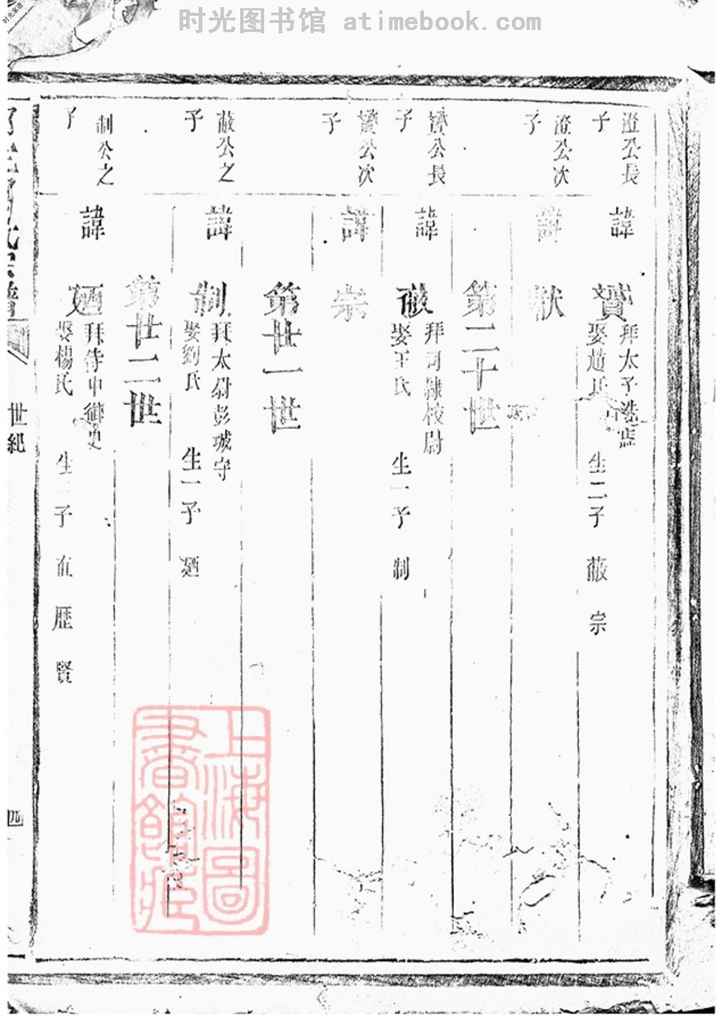 时光图书馆 atimebook.com
澄公長
子
諱
寶
拜太子洗
娶趙氏 生二子 蔽 宗
澄公次
子
諱 猷
第二十世
寶公長
子
諱 蔽
拜司隸校尉
娶王氏 生一子 制
寶公次
子
諱 宗
第廿一世
蔽公之
子
諱 制
拜太尉彭城守
娶劉氏 生一子 廼
第廿二世
制公之
子
諱 廼
拜侍中御史
娶楊氏 生三子 歷 賢
氏宗譜
世紀
四
上海图
书馆藏